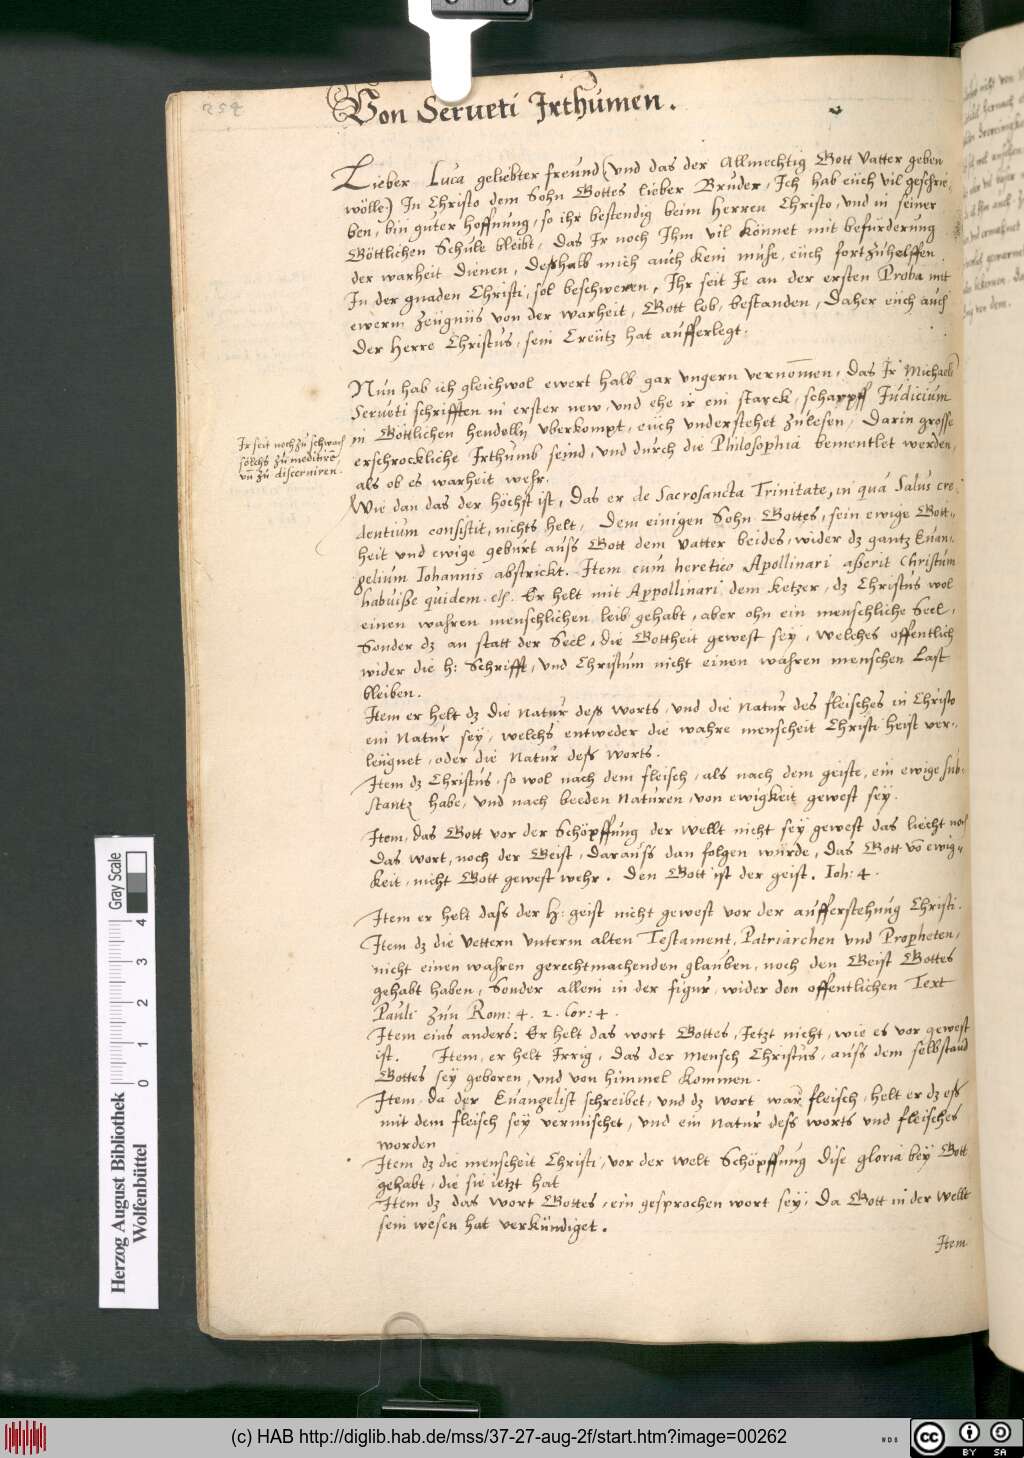 254
Von Serueti Irthumen.
Lieber Luca geliebter freund (vnd das der Allmechtig Gott Vatter geben
wölle) In Christo dem Sohn Gottes lieber Bruder, Ich hab eüch vil geschrie,
ben, bin guter hoffnung, so ihr bestendig beim Herren Christo, vnd in seiner
Göttlichen Schule bleibt, das Ir noch Ihm vil könnet mit befurderung
der warheit dienen, deßhalb mich auch kein muhe, eüch fortzuhelffen
In der gnaden Christi, sol beschweren, Ihr seit Ie an der ersten Proba mit
ewerm zeügnüs von der warheit, Gott lob, bestanden, Daher eüch auch
der Herre Christus sein Creütz hat aufferlegt.
Nun hab ich gleichwol ewert halb gar vngern vernommen, das Ir Michaels
Serueti schrifften in erster new, vnd ehe ir ein starck, scharpff Judicium
in Göttlichen hendelln vberkompt, euch vnderstehet zulesen, Darin grosse
erschrockliche Irthumb seind, vnd durch die Philosophia bementlet werden,
als ob es warheit wehr.
Ir seit noch zu schwach
solchs zu meditirē,
vn̄ zu discerniren.
Wie dan das der höchst ist, das er de Sacrosancta Trinitate, in qua Salus cre,
dentium consistit, nichts helt, Dem einigen Sohn Gottes, sein ewige Gott,,
heit vnd ewige geburt auss Gott dem vatter beides, wider dz gantz Euan,
gelium Iohannis abstrickt. Item cum heretico Apollinari aßerit Christum
habuiße quidem. etc. Er helt mit Appollinari dem ketzer, dz Christus wol
einen wahren menschlichen leib gehabt, aber ohn ein menschliche Seel,
Sonder dz an statt der Seel, die Gottheit gewest sey, welches offentlich
wider die h: Schrifft, vnd Christum nicht einen wahren menschen Last
bleiben.
Item er helt dz die natur deß worts, vnd die natur des fleisches in Christo
ein natur sey, welchs entweder die wahre menscheit Christi heist ver,,
leügnet, oder die natur deß worts.
Item dz Christus, so wol nach dem fleisch, als nach dem geiste, ein ewige sub,
stantz habe, vnd nach beeden naturen, von ewigkeit gewest sey.
Item, das Gott vor der Schöpffung der wellt nicht sey gewest das liecht noch
das wort, noch der Geist, darauss dan folgen würde, das Gott vō ewig,,
keit, nicht Gott gewest wehr. Den Gott ist der geist. Ioh: 4.
Item er helt dass der H: geist nicht gewest vor der aufferstehung Christi.
Item dz die vettern vnterm alten Testament, Patriarchen vnd Propheten,
nicht einen wahren gerechtmachenden glauben, noch den Geist Gottes
gehabt haben, Sonder allein in der figur, wider den offentlichen Text
Pauli zun Rom: 4. 2. Cor: 4.
Item eins anders: Er helt das wort Gottes, Ietzt nicht, wie es vor gewest
ist. Item, er helt Irrig, das der mensch Christus, auss dem selbstand
Gottes sey geboren, vnd von himmel kommen.
Item, da der Euangelist schreibet, vnd dz wort war fleisch, helt er dz eß
mit dem fleisch sey vermischet, vnd ein natur deß worts vnd fleisches
worden
Item dz die menscheit Christi, vor der welt Schöpffung dise gloria bey Gott
gehabt, die sie ietzt hat
Item dz das wort Gottes, ein gesprochen wort sey, da Gott in der wellt
sein wesen hat verkündiget.
Item
Herzog August Bibliothek
Wolfenbüttel
0 1 2 3 4
Gray Scale
(c) HAB http://diglib.hab.de/mss/37-27-aug-2f/start.htm?image=00262
WDB
cc BY SA